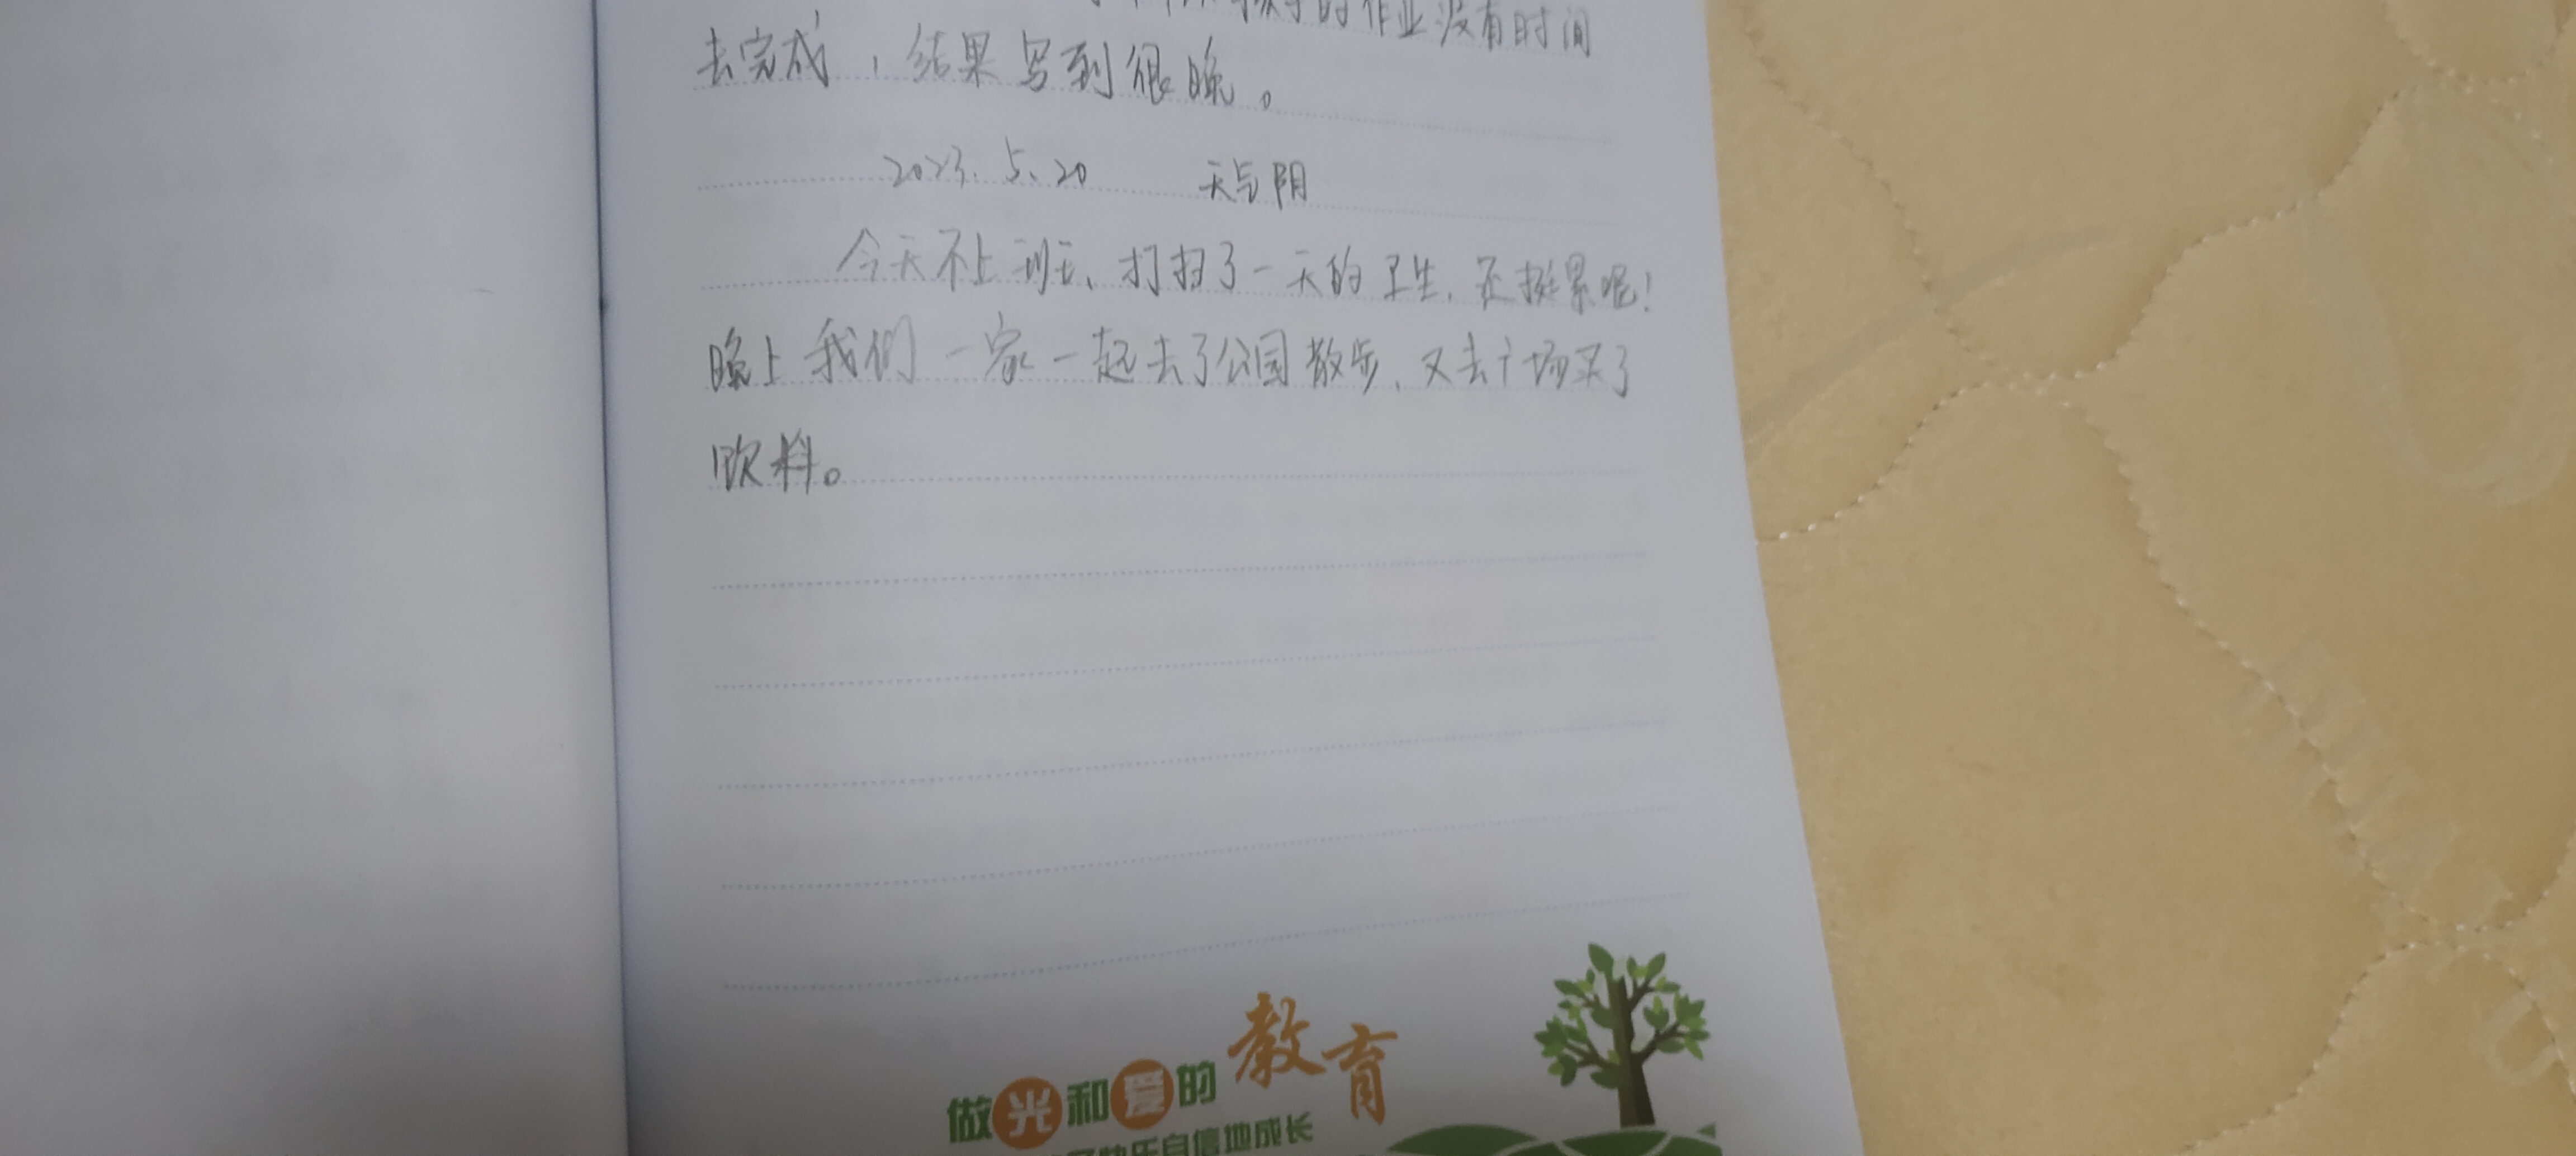 的作业没有时间
去完成，结果写到很晚。
2023.5.20 天气阴
今天不上班、打扫了一天的卫生，还挺累呢！
晚上我们一家一起去了公园散步，又去广场买了
饮料。
做光和爱的教育
快乐自信地成长